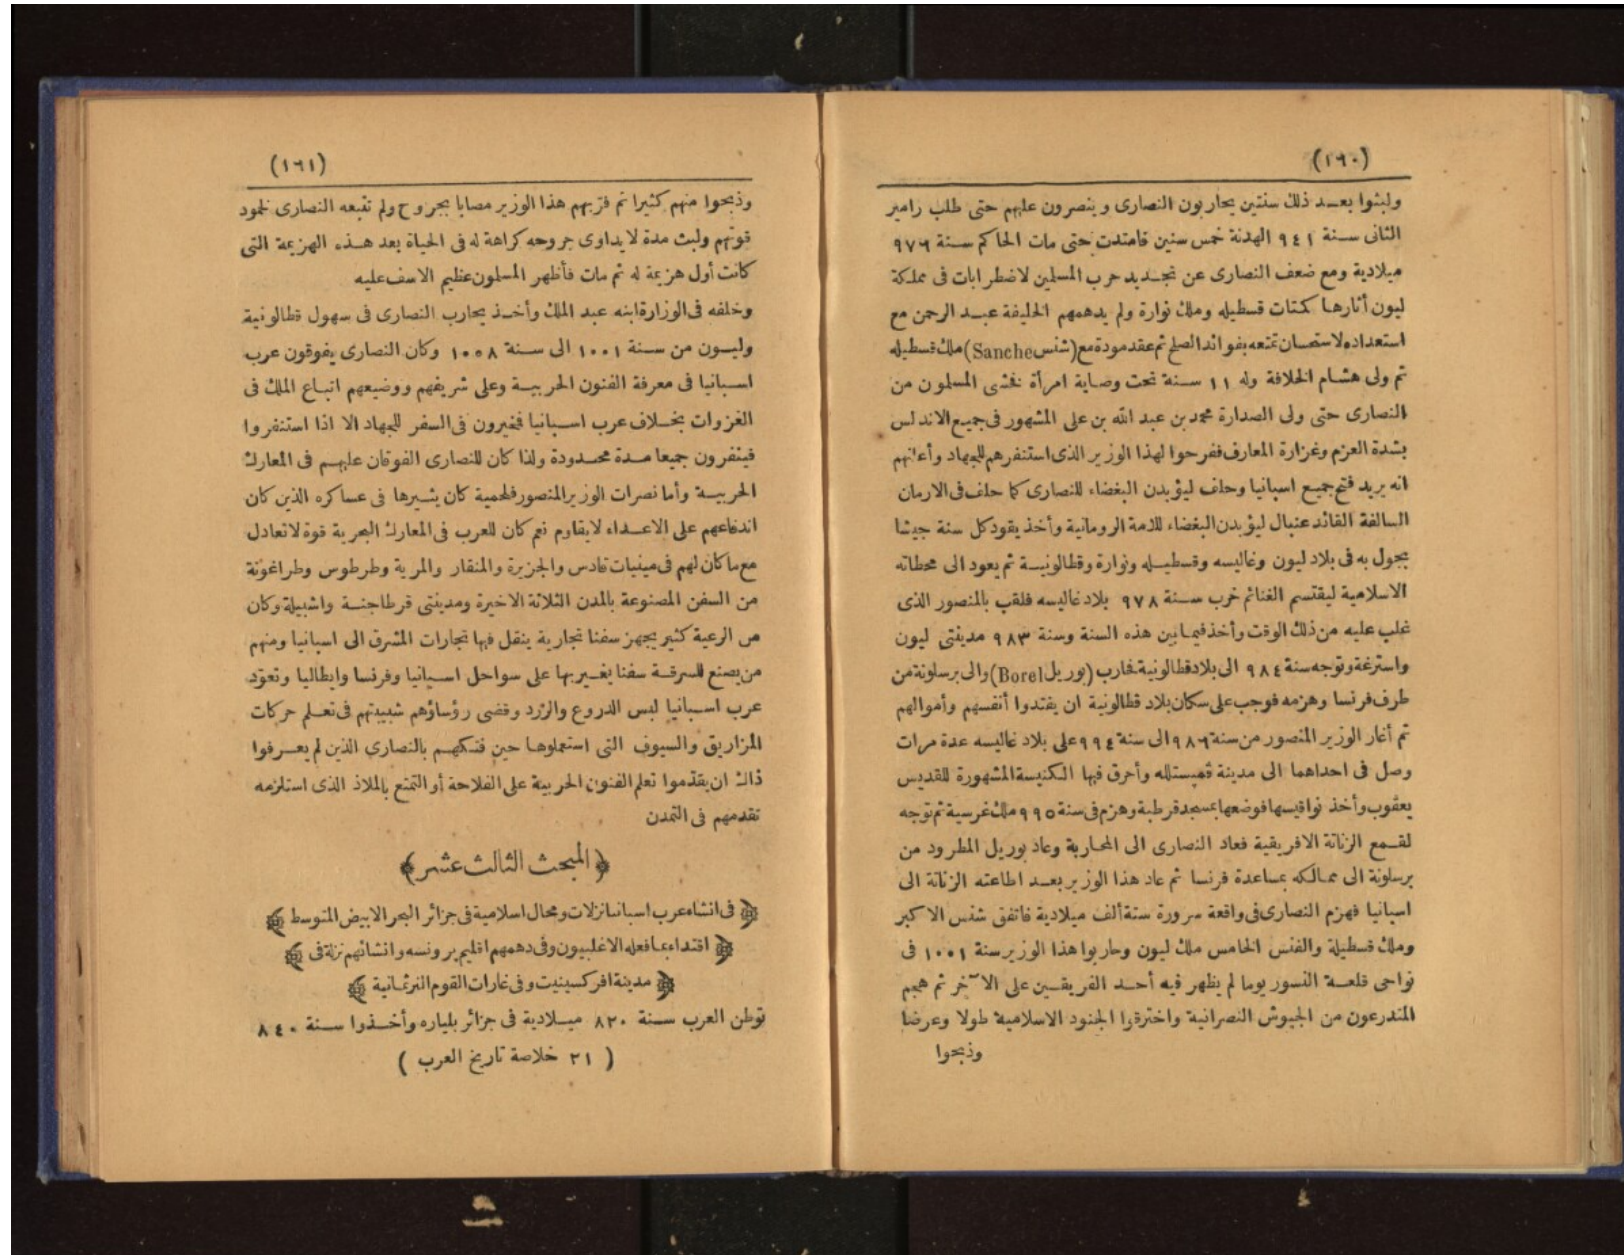 (١٦٠)
ولبثوا بعد ذلك سنتين يحاربون النصارى وينصرون عليهم حتى طلب رامير
الثانى سنة ٩٤١ الهدنة خمس سنين فامتدت حتى مات الحاكم سنة ٩٧٦
ميلادية ومع ضعف النصارى عن تجديد حرب المسلمين لاضطرابات فى مملكة
ليون أثارها كمتات قسطيله وملك نوارة ولم يدهمهم الخليفة عبد الرحمن مع
استعداده لاستحسان تمتعه بفوائد الصلح ثم عقد مودة مع (شنس Sanche) ملك قسطيله
ثم ولى هشام الخلافة وله ١١ سنة تحت وصاية امرأة فخشى المسلمون من
النصارى حتى ولى الصدارة محمد بن عبد الله بن على المشهور فى جميع الاندلس
بشدة العزم وغزارة المعارف ففرحوا لهذا الوزير الذى استنفرهم للجهاد وأعلنهم
انه يريد فتح جميع اسبانيا وحلف ليؤبدن البغضاء للنصارى كما حلف فى الازمان
السالفة القائد عنبال ليؤبدن البغضاء للامة الرومانية وأخذ يقود كل سنة جيشا
يجول به فى بلاد ليون وغاليسه وقسطيله ونوارة وقطالونية ثم يعود الى محطاته
الاسلامية ليقتسم الغنائم خرب سنة ٩٧٨ بلاد غاليسه فلقب بالمنصور الذى
غلب عليه من ذلك الوقت وأخذ فيما بين هذه السنة وسنة ٩٨٣ مدينتى ليون
واسترغة وتوجه سنة ٩٨٤ الى بلاد قطالونية فحارب (بوريل Borel) والى برسلونة من
طرف فرنسا وهزمه فوجب على سكان بلاد قطالونية ان يفتدوا أنفسهم وأموالهم
ثم أغار الوزير المنصور من سنة ٩٨٦ الى سنة ٩٩٤ على بلاد غاليسه عدة مرات
وصل فى احداهما الى مدينة قمپستلله وأحرق فيها الكنيسة المشهورة للقديس
يعقوب وأخذ نواقيسها فوضعها بمسجد قرطبة وهزم فى سنة ٩٩٥ ملك غرسية ثم توجه
لقمع الزناتة الافريقية فعاد النصارى الى المحاربة وعاد بوريل المطرود من
برسلونة الى ممالكه بمساعدة فرنسا ثم عاد هذا الوزير بعد اطاعته الزناتة الى
اسبانيا فهزم النصارى فى واقعة سرورة سنة ألف ميلادية فاتفق شنس الاكبر
وملك قسطيلة والفنس الخامس ملك ليون وحاربوا هذا الوزير سنة ١٠٠١ فى
نواحى قلعة النسور يوما لم يظهر فيه أحد الفريقين على الآخر ثم هجم
المتدرعون من الجيوش النصرانية واخترقوا الجنود الاسلامية طولا وعرضا
وذبحوا
(١٦١)
وذبحوا منهم كثيرا ثم فر بهم هذا الوزير مصابا بجروح ولم تتبعه النصارى لخمود
قوتهم ولبث مدة لا يداوى جروحه كراهة له فى الحياة بعد هذه الهزيمة التى
كانت أول هزيمة له ثم مات فأظهر المسلمون عظيم الاسف عليه
وخلفه فى الوزارة ابنه عبد الملك وأخذ يحارب النصارى فى سهول قطالونية
وليون من سنة ١٠٠١ الى سنة ١٠٠٨ وكان النصارى يفوقون عرب
اسبانيا فى معرفة الفنون الحربية وعلى شريفهم ووضيعهم اتباع الملك فى
الغزوات بخلاف عرب اسبانيا فمخيرون فى السفر للجهاد الا اذا استنفروا
فينفرون جميعا مدة محدودة ولذا كان للنصارى الفوقان عليهم فى المعارك
الحربية وأما نصرات الوزير المنصور فلحمية كان يثيرها فى عساكره الذين كان
اندفاعهم على الاعداء لا يقاوم نعم كان للعرب فى المعارك البحرية قوة لا تعادل
مع ما كان لهم فى مينيات قادس والجزيرة والمنقار والمرية وطرطوس وطراغونة
من السفن المصنوعة بالمدن الثلاثة الاخيرة ومدينتى قرطاجنة واشبيلة وكان
من الرعية كثير يجهز سفنا تجارية ينقل فيها تجارات المشرق الى اسبانيا ومنهم
من يصنع للسرقة سفنا يغير بها على سواحل اسبانيا وفرنسا وايطاليا وتعوّد
عرب اسبانيا لبس الدروع والزرد وقضى رؤساؤهم شبيبتهم فى تعلم حركات
المزاريق والسيوف التى استعملوها حين فتكهم بالنصارى الذين لم يعرفوا
ذلك ان يقدّموا تعلم الفنون الحربية على الفلاحة أو التمتع بالملاذ الذى استلزمه
تقدمهم فى التمدن
﴿المبحث الثالث عشر﴾
﴿فى انشاء عرب اسبانيا نزلات ومحال اسلامية فى جزائر البحر الابيض المتوسط﴾
﴿اقتداء بما فعله الاغلبيون وفى دهمهم اقليم برونسه وانشائهم نزلة فى﴾
﴿مدينة افركسينيت وفى غارات القوم النرثمانية﴾
توطن العرب سنة ٨٢٠ ميلادية فى جزائر بلياره وأخذوا سنة ٨٤٠
( ٢١ خلاصة تاريخ العرب )